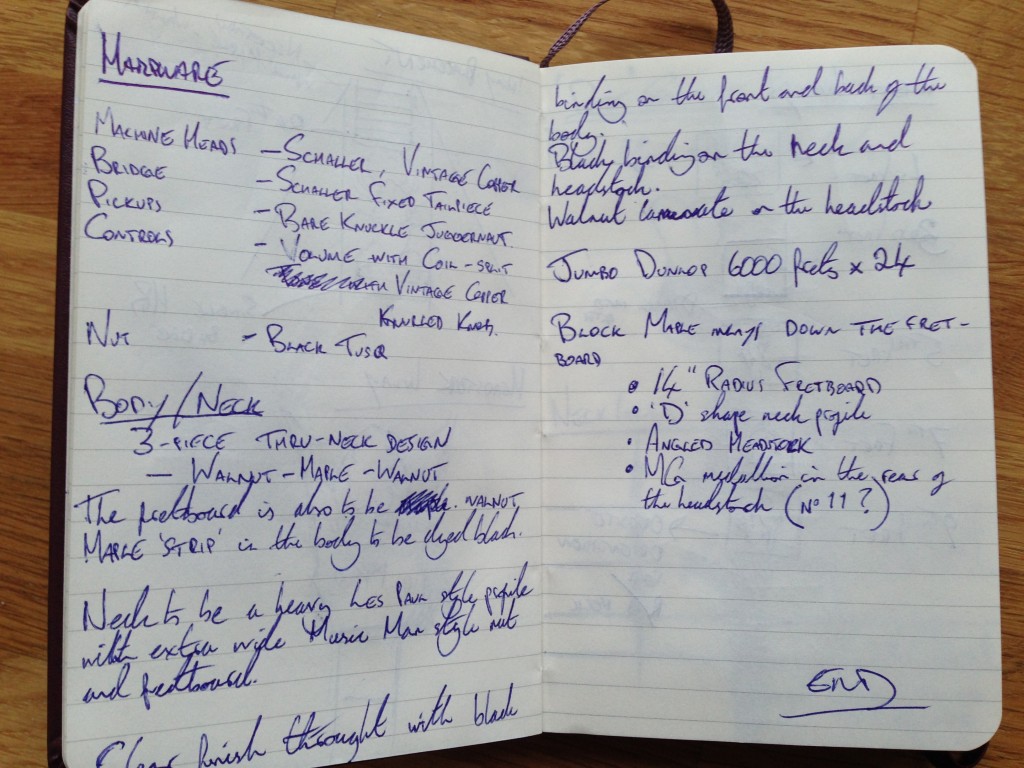 HARDWARE
MACHINE HEADS – SCHALLER, VINTAGE COPPER
BRIDGE – SCHALLER FIXED TAILPIECE
PICKUPS – BARE KNUCKLE JUGGERNAUT
CONTROLS – VOLUME WITH COIL-SPLIT
WITH VINTAGE COPPER
KNURLED KNOB.
NUT – BLACK TUSQ
BODY/NECK
3-PIECE THRU-NECK DESIGN
– WALNUT-MAPLE-WALNUT
The fretboard is also to be WALNUT
MAPLE 'STRIP' in the body to be dyed black.
Neck to be a heavy LES PAUL style profile
with extra wide Music Man style nut
and fretboard.
Clear finish throught with black
binding on the front and back of the
body.
Black binding on the neck and
headstock.
Walnut laminate on the headstock
JUMBO DUNLOP 6000 frets x 24
BLOCK MAPLE inlays DOWN THE FRET-
BOARD
• 14" RADIUS FRETBOARD
• 'D' shape neck profile
• ANGLED HEADSTOCK
• MG medallion in the rear of
the headstock (Nº 11?)
END